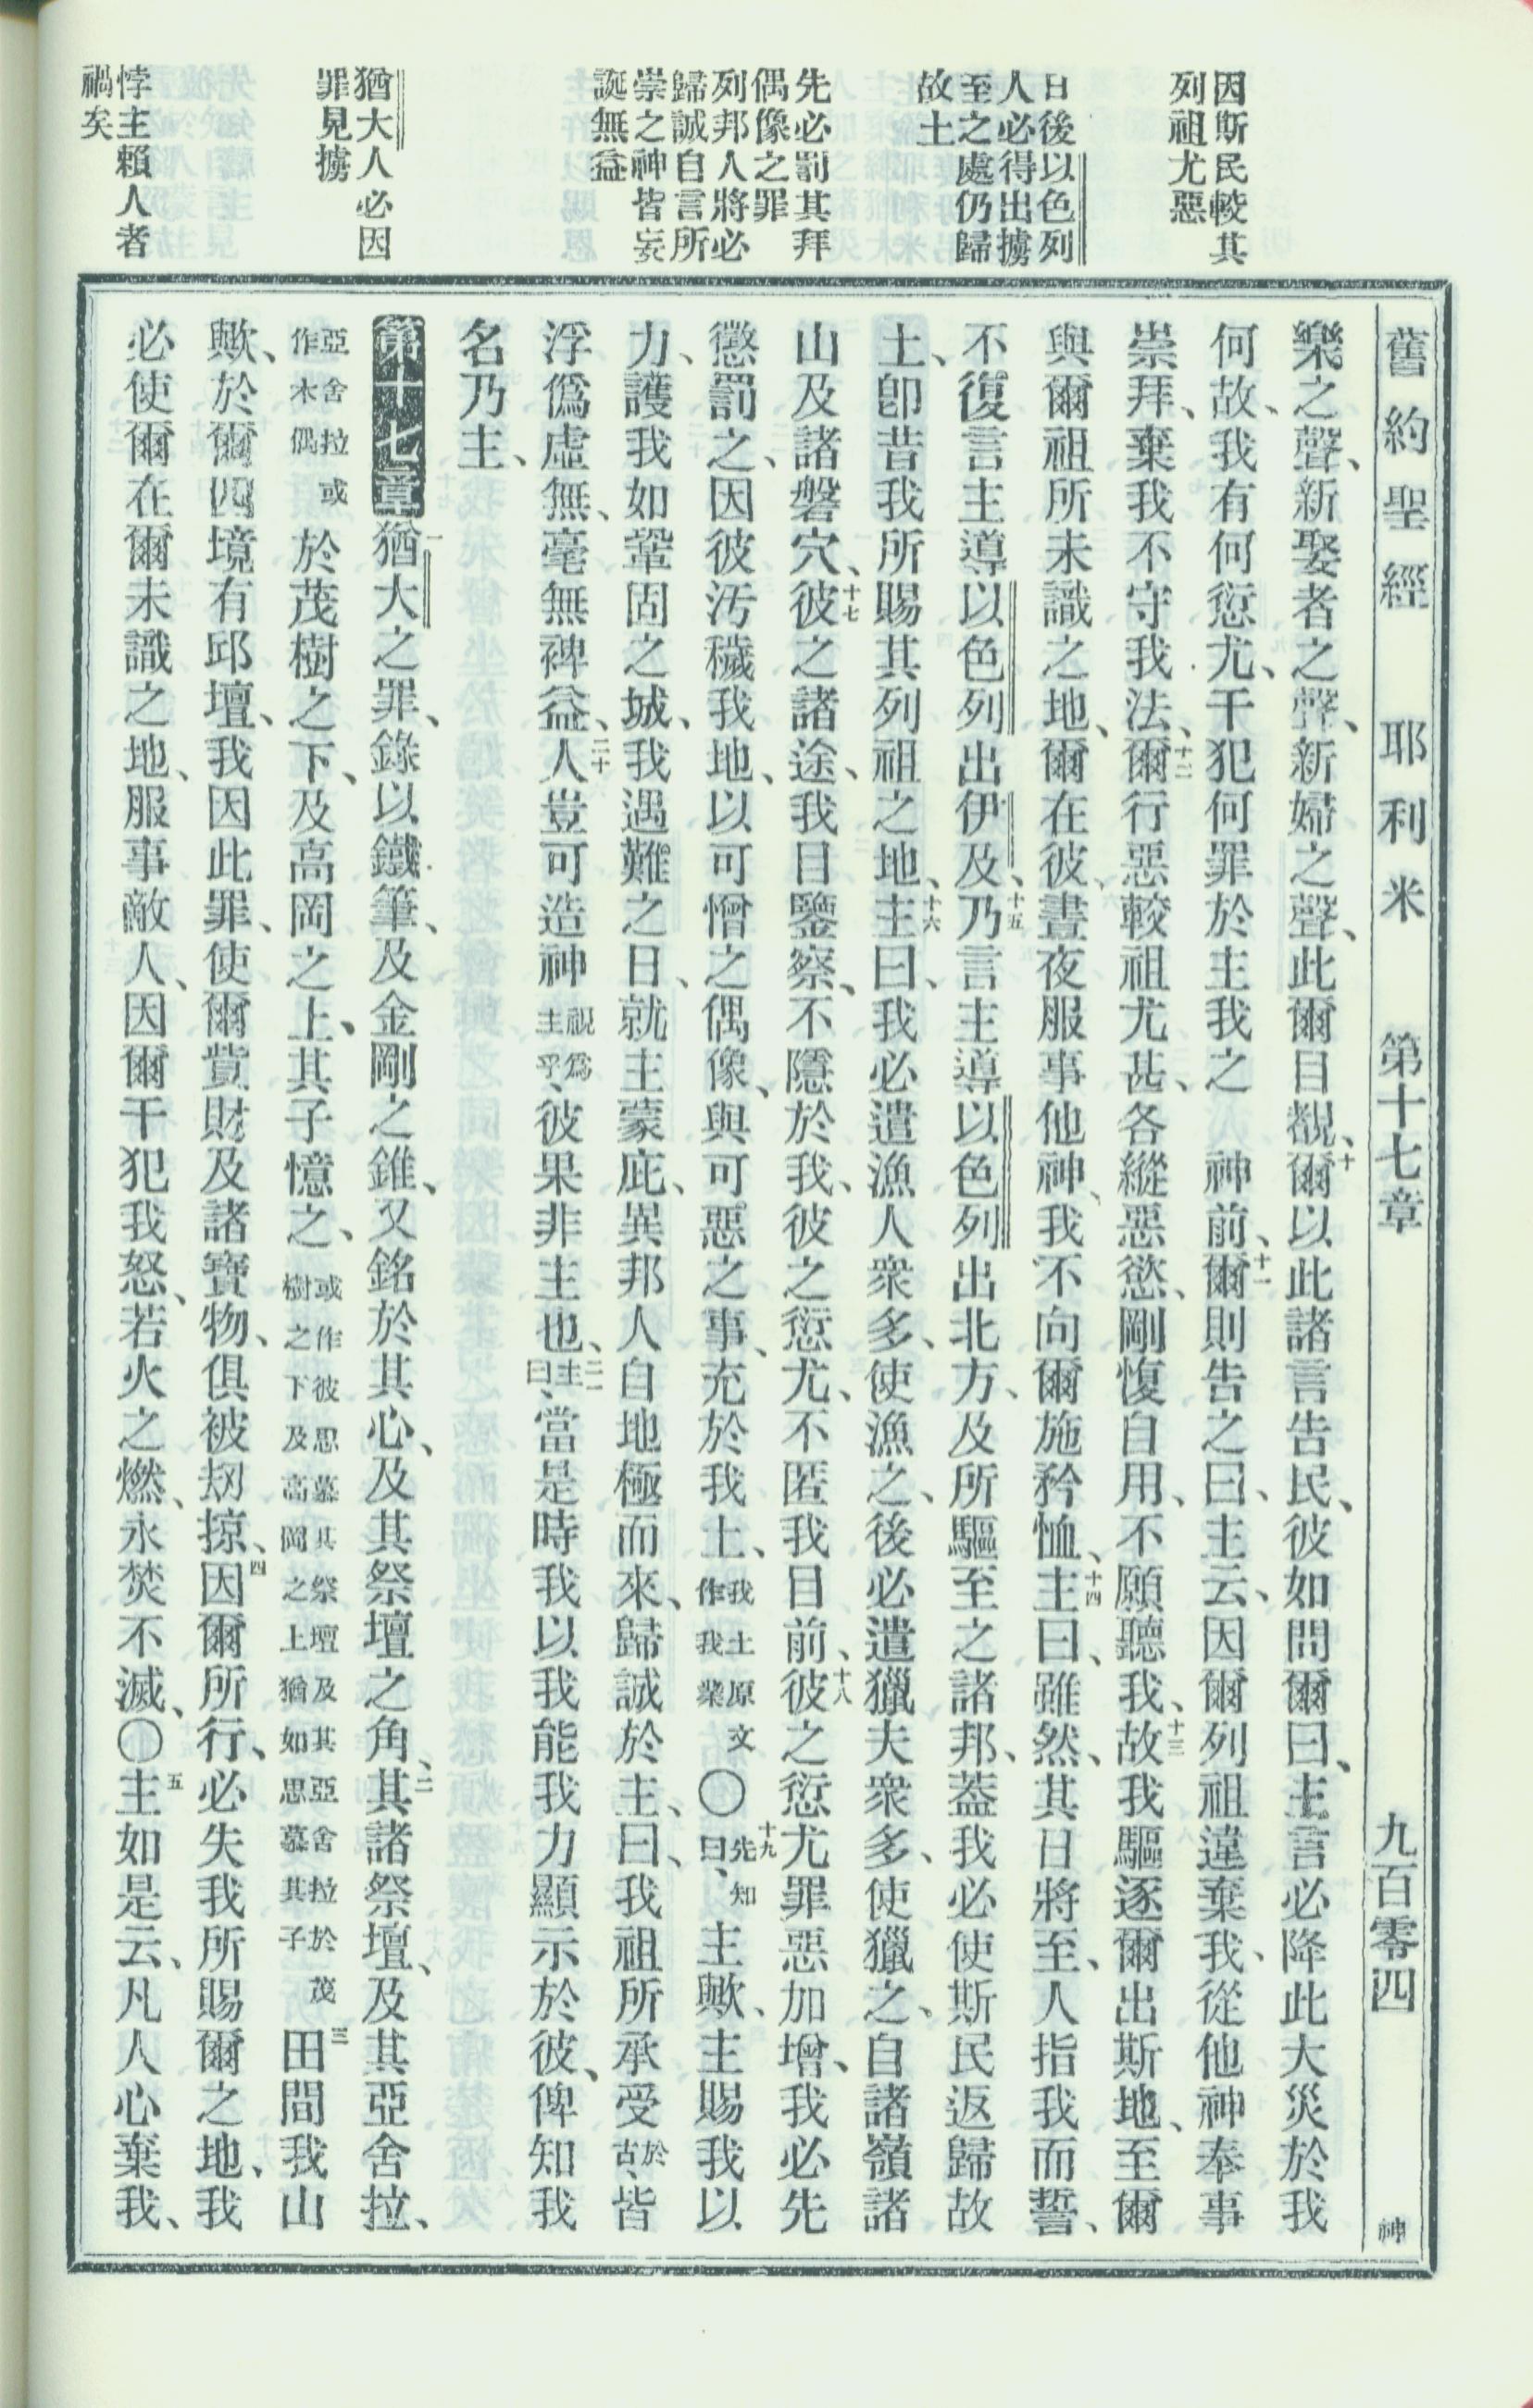 舊約聖經　耶利米　第十七章　九百零四　神
因斯民較其
列祖尤惡
日後以色列
人必得出擄
至之處仍歸
故土
先必罰其拜
偶像之罪
列邦人將必
歸誠自言所
崇之神皆妄
誕無益
猶大人必因
罪見擄
悖主賴人者
禍矣
樂之聲、新娶者之聲、新婦之聲、此爾目覩、十爾以此諸言告民、彼如問爾曰、主言必降此大災於我
何故、我有何愆尤、干犯何罪於主我之　神前、十一爾則告之曰、主云、因爾列祖違棄我、從他神奉事
崇拜、棄我不守我法、十二爾行惡較祖尤甚、各縱惡慾、剛愎自用、不願聽我、十三故我驅逐爾出斯地、至爾
與爾祖所未識之地、爾在彼、晝夜服事他神、我不向爾施矜恤、十四主曰、雖然、其日將至、人指我而誓、
不復言主導以色列出伊及、十五乃言主導以色列出北方、及所驅至之諸邦、蓋我必使斯民返歸故
土、卽昔我所賜其列祖之地、十六主曰、我必遣漁人衆多、使漁之、後必遣獵夫衆多、使獵之、自諸嶺諸
山及諸磐穴、十七彼之諸途、我目鑒察、不隱於我、彼之愆尤、不匿我目前、十八彼之愆尤罪惡加增、我必先
懲罰之、因彼汚穢我地、以可憎之偶像、與可惡之事、充於我土、我土原文作我業〇十九先知曰、主歟、主賜我以
力、護我如鞏固之城、我遇難之日、就主蒙庇、異邦人自地極而來、歸誠於主、曰、我祖所承受於古、皆
浮僞虛無、毫無裨益、二十人豈可造神視爲主乎、彼果非主也、二一主曰、當是時我以我能我力顯示於彼、俾知我
名乃主、
第十七章一猶大之罪、錄以鐵筆、及金剛之錐、又銘於其心、及其祭壇之角、二其諸祭壇、及其亞舍拉、
亞舍拉或作木偶於茂樹之下、及高岡之上、其子憶之、或作彼思慕其祭壇及其亞舍拉於茂樹之下及高岡之上猶如思慕其子三田間我山
歟、於爾四境有邱壇、我因此罪、使爾貲財及諸寶物、俱被刼掠、四因爾所行、必失我所賜爾之地、我
必使爾在爾未識之地、服事敵人、因爾干犯我怒、若火之燃、永焚不滅、〇五主如是云、凡人心棄我、